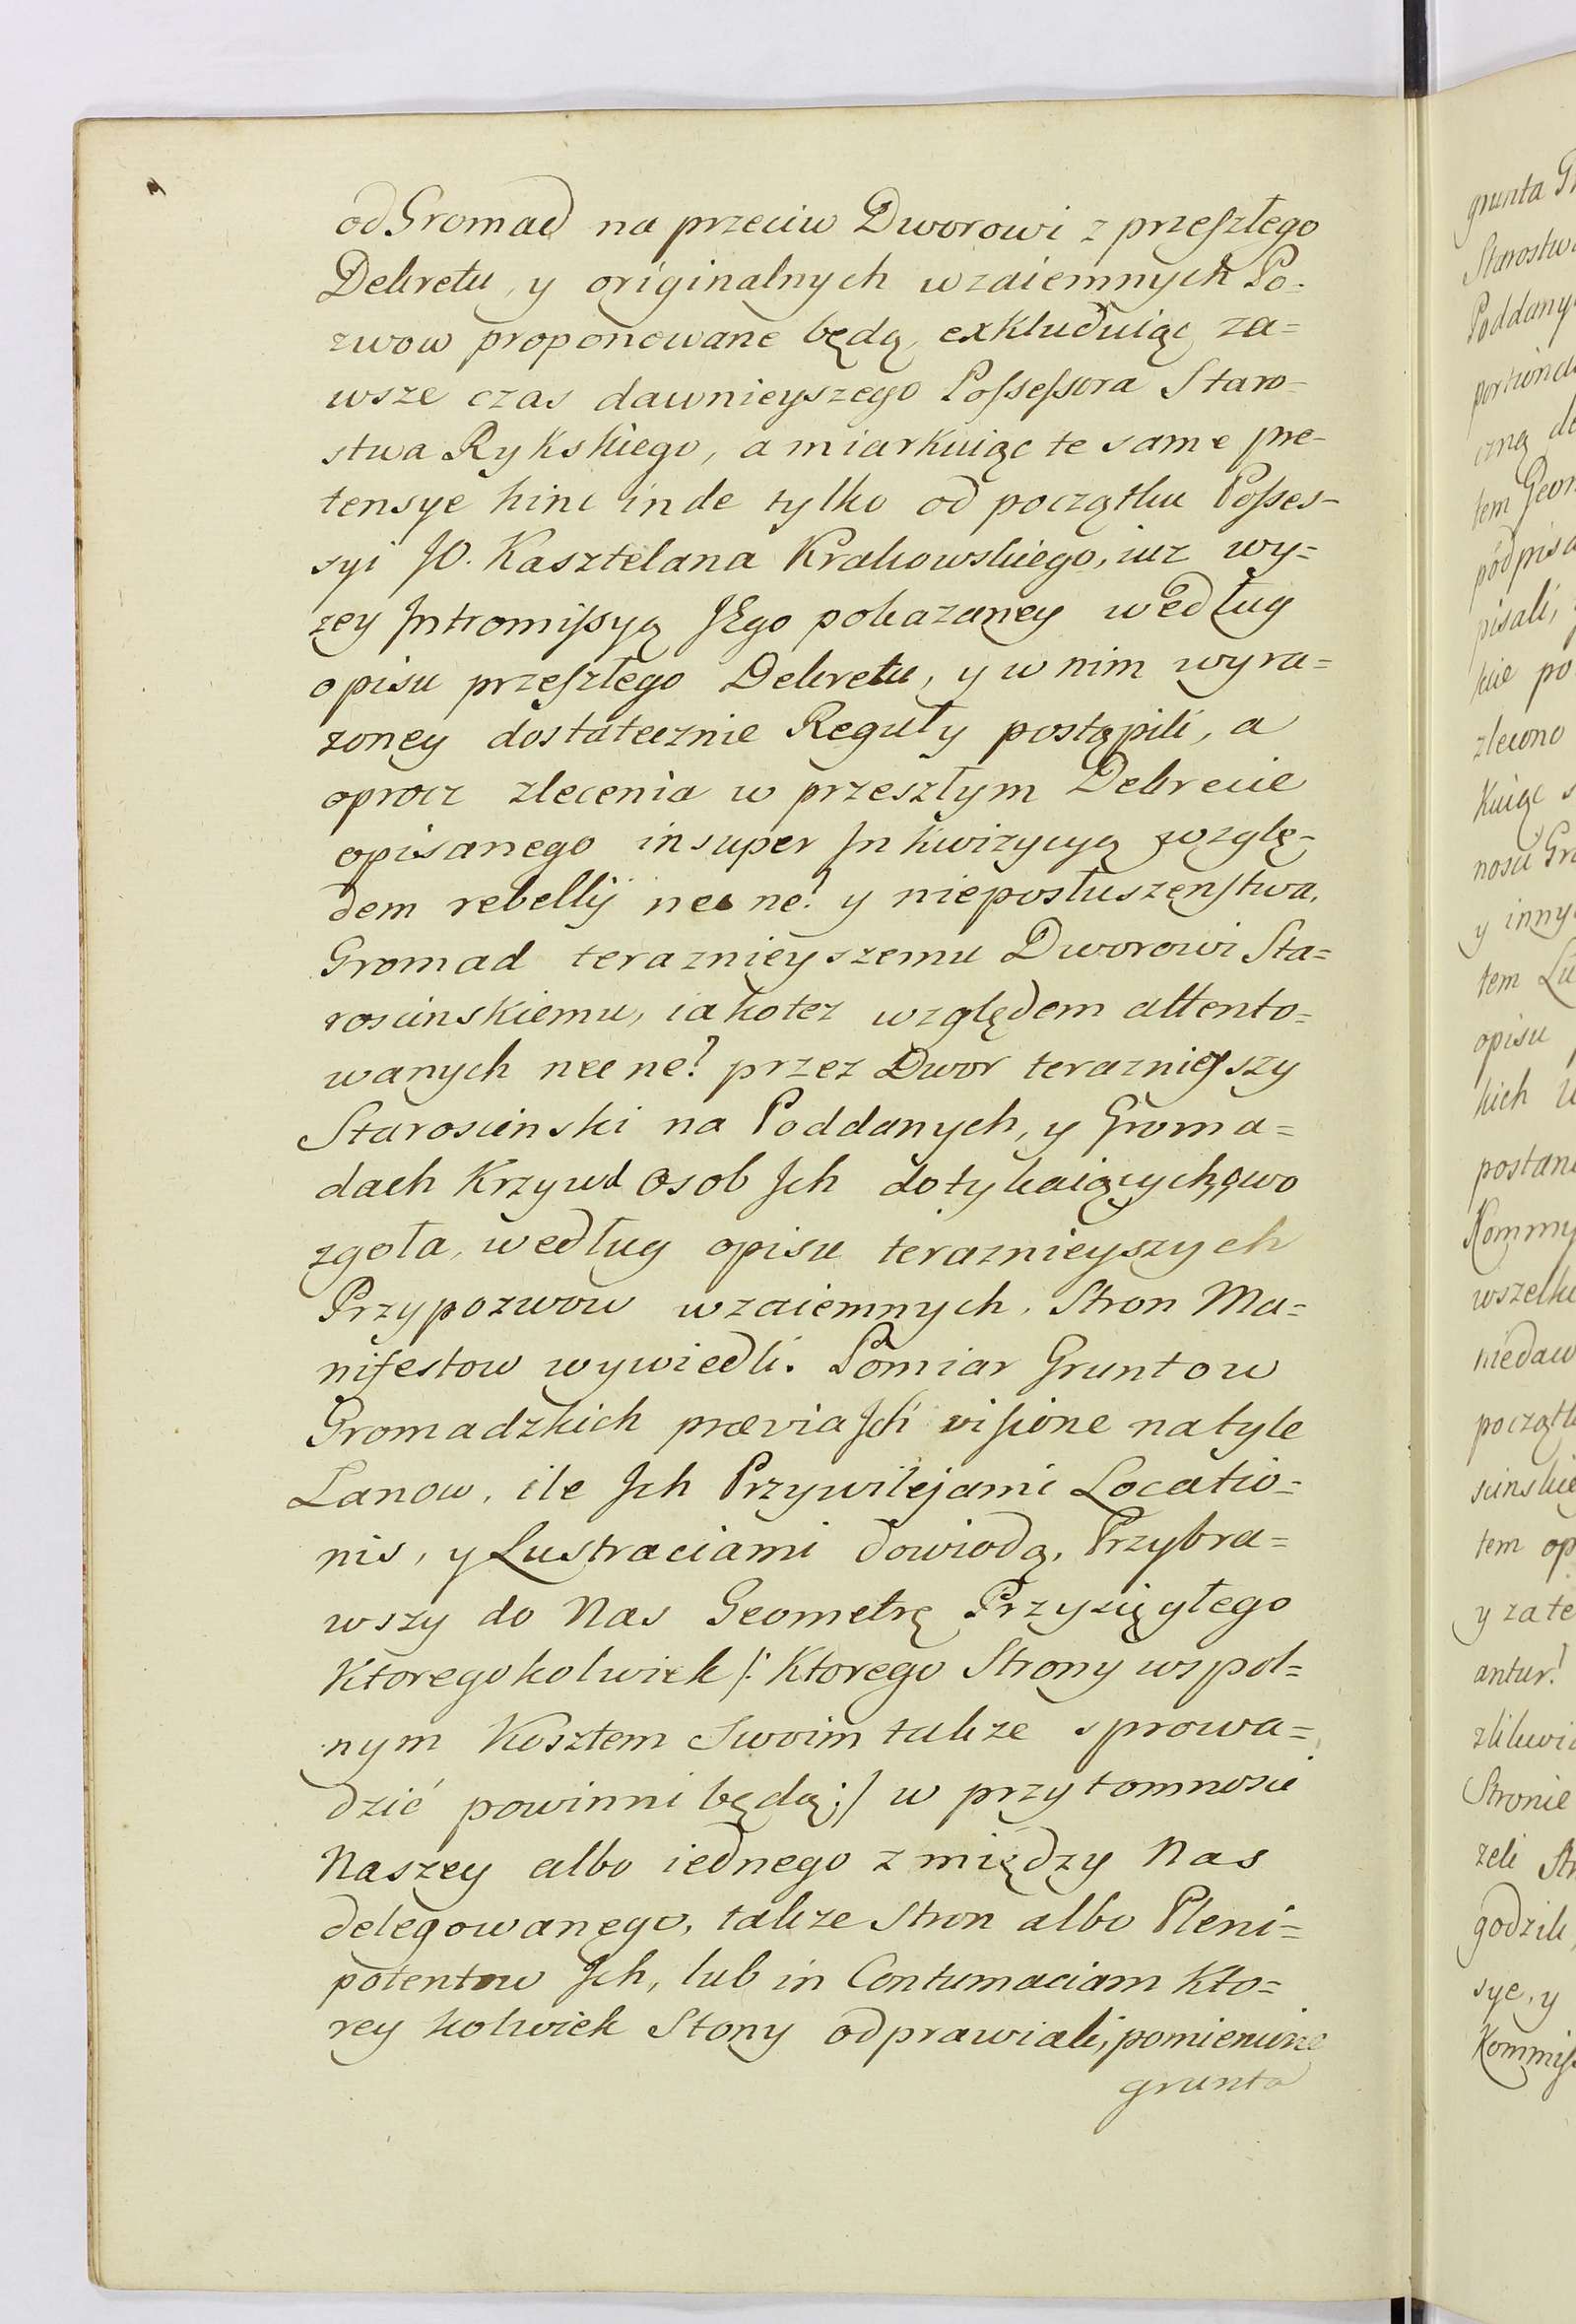 od Gromad na przeciw Dworowi z przeszłego
Dekretu, y originalnych wzaiemnych Po-
zwow proponowane będą, exkluduiąc za=
wsze czas dawnieyszego Possessora Staro-
stwa Rykskiego, a miarkuiąc te same pre-
tensye hinc inde tylko od początku Posses-
syi JO. Kasztelana Krakowskiego, iuz wy=
zey Intromissyą JEgo pokazaney według
opisu przeszłego Dekretu, y w nim wyra=
zoney dostatecznie Reguły postąpili, a
oprocz zlecenia w przeszłym Dekrecie
opisanego insuper Inkwizycyą wzglę-
dem rebellij nec ne? y nieposłuszenstwa,
Gromad teraznieyszemu Dworowi Sta=
roscinskiemu, iako tez względem attento=
wanych nec ne? przez Dwor teraznieyszy
Staroscinski na Poddanych, y Groma=
dach Krzywd Osob Ich dotykaiących, owo
zgoła, według opisu teraznieyszych
Przypozwow wzaiemnych, Stron Ma=
nifestow wywiedli. Pomiar Gruntow
Gromadzkich prævia Ich visione na tyle
Lanow, ile Ich Przywilejami Locatio=
nis, y Lustraciami dowiodą, Przybra=
wszy do Nas Geometrę Przysięgłego
Ktoregokolwiek /: Ktorego Strony wspol=
nym Kosztem Swoim takze sprowa=
dzić powinni będą :/ w przytomnosci
Naszey albo iednego z między Nas
delegowanego, takze Stron albo Pleni=
potentow Ich, lub in Contumaciam Kto=
rey kolwiek Stony odprawiali, pomienione
grunta
grunta
Starostw
Poddany
czną
tem Geo
podpis
pisali,
kie po
zlecono
Kuiąc
y inny
tem Lu
opisu
kich
postan
Kommy
wszelk
niedaw
początk
scinskie
tem op
y za te
antur?
Stronie
zeli St
godzili,
sye, y
Kommiss